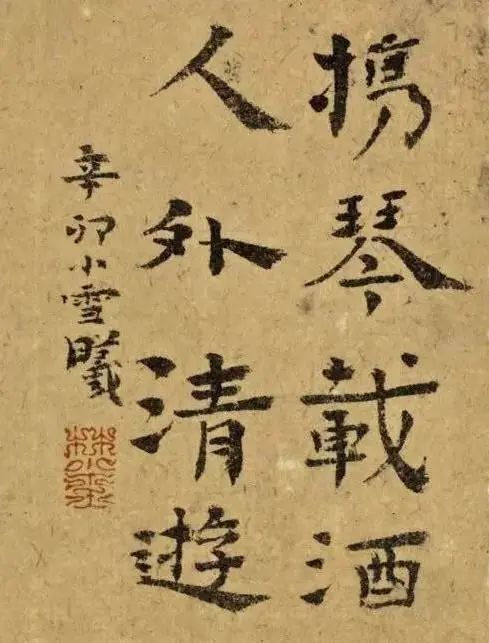 携琴載酒
人外清遊
辛卯小雪曦